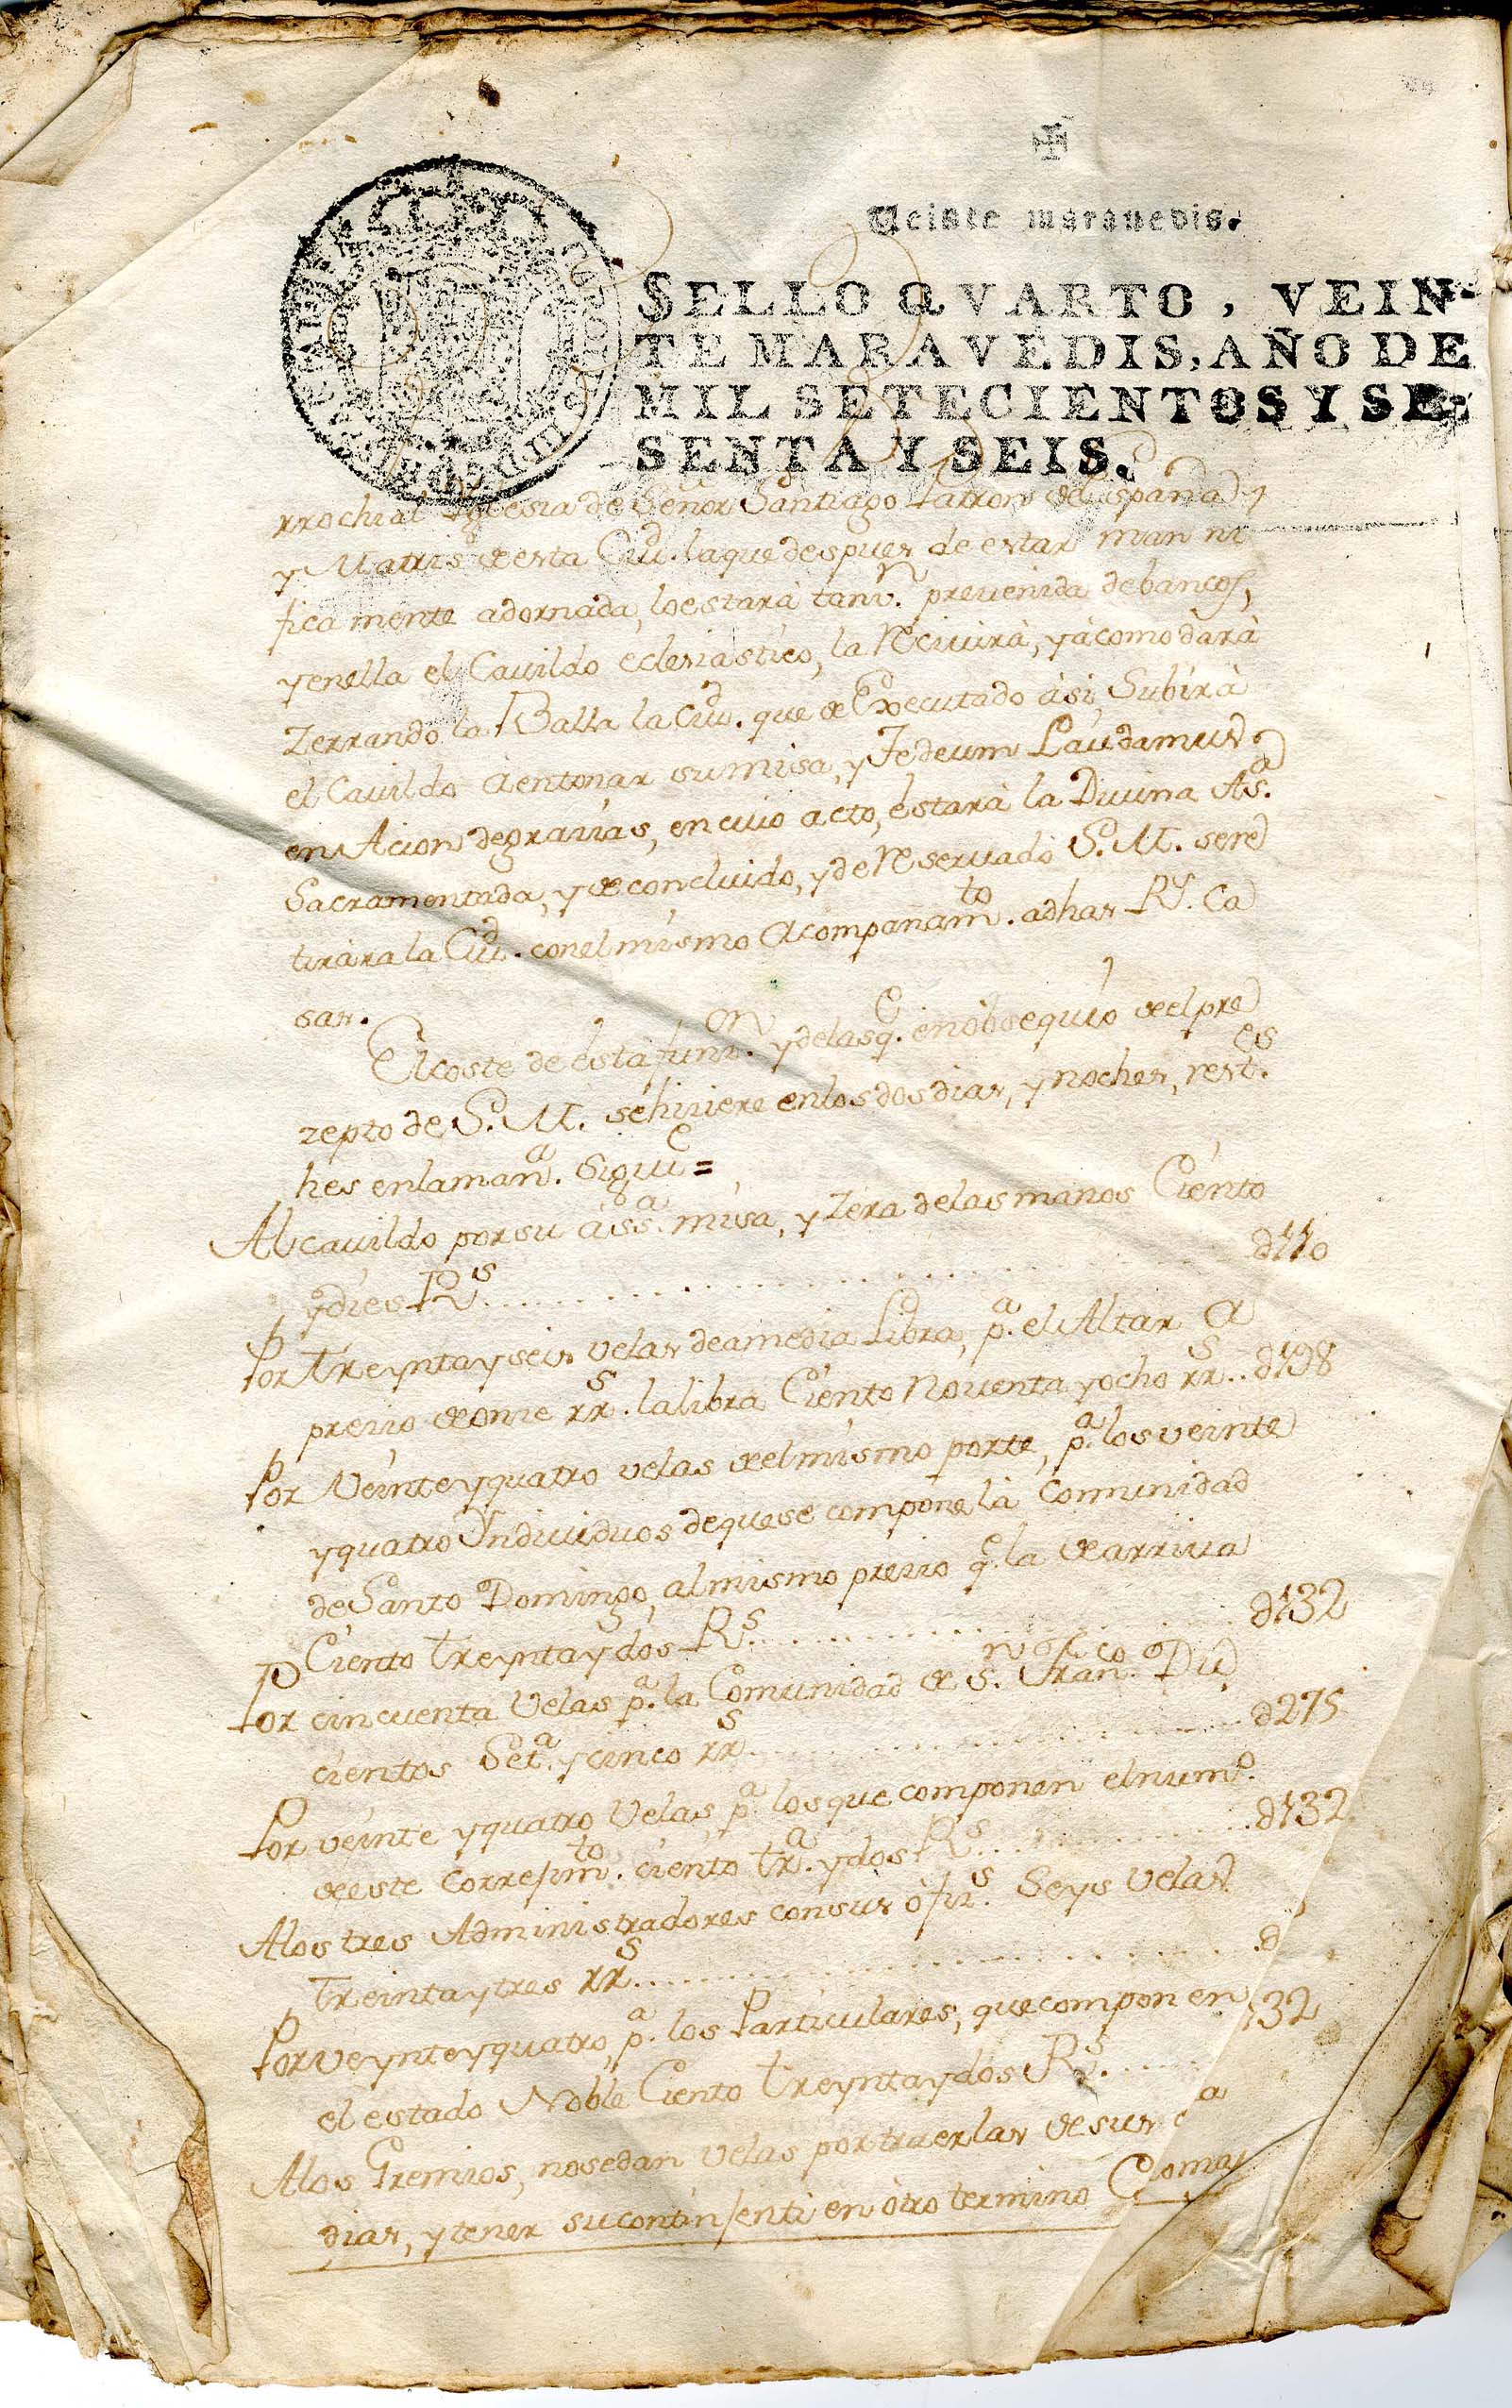 Veinte maravedis.
SELLO QVARTO, VEIN-
TE MARAVEDIS, AÑO DE
MIL SETECIENTOS Y SE-
SENTA Y SEIS.
rrochial Yglesia de Señor Santiago Patron de España
y Matris de esta Ciud. la que despues de estar man ni
fica mente adornada, lo estarà tanv.n prevenida de bancos,
y en ella el Cavildo eclesiastico, la Recivirà, y àcomodarà
Zerrando la Balla la Ciud. que de Executado àsi, Subirà
el Cavildo à entonar su misa, y Tedeum Laudamus
en Acion de gracias, en cuio acto, estarà la Divina As.
Sacramentada, y de concluido, y de Reservado S. M. se re
tirara la Ciud. con el mismo Acompañam.to a dhas R.s Ca
sas.
El coste de ésta funz.on y de las q.e en òbsequio de el pre
zepto de S. M. se hiziere en los dos dias, y noches, rest.es
hes en la man.a Siguie =
Al cavildo por su às.a misa, y Zera de las manos Ciento
y dies R.s ... d110
Por Treynta y seis velas de a media Libra, p.a el Altar a
precio de onze rr.s la libra Ciento Noventa y ocho rr.s .. d198
Por Veinte y quatro velas de el mismo porte, p.a los veinte
y quatro Yndividuos de que se compone la Comunidad
de Santo Domingo, al mismo precio q.e la de arriva
Ciento Treynta y dos R.s ... d132
Por cincuenta Velas p.a la Comunidad de S.n Fran.co Du
cientos Set.a y cinco rr.s ... d275
Por veinte y quatro Velas, p.a los que componen el num.o
de este Correjim.to ciento tr.a y dos R.s ... d132
A los tres Administradores con sus ofiz.s Seys Velas
Treinta y tres rr.s ... d
Por veynte y quatro, p.a los Particulares, que componen
el estado Noble Ciento treynta y dos R.s ... 132
A los Gremios, no se dan velas por traerlas de sus
dias, y tener su continjenti en òtro termino